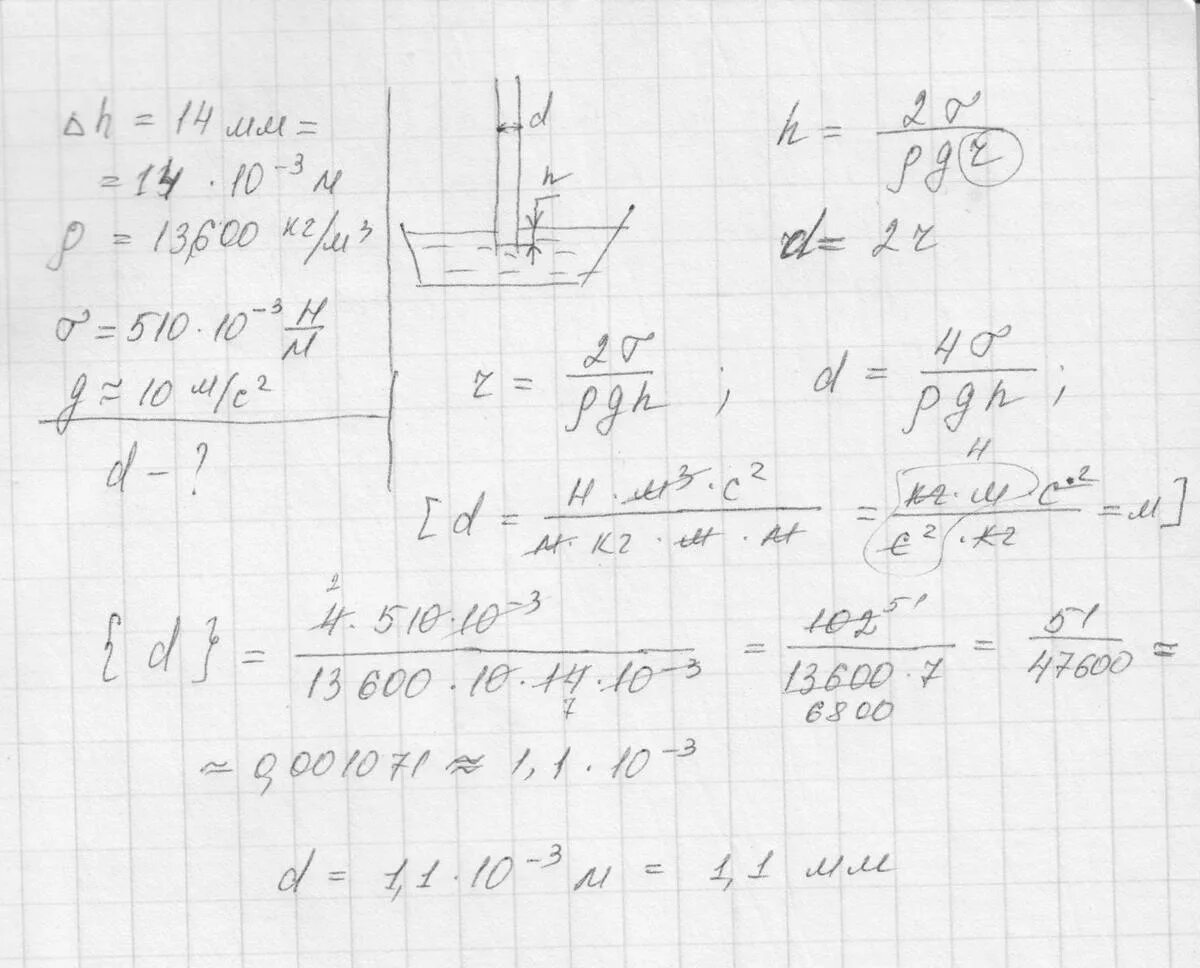 Δh = 14 мм =
= 14 · 10⁻³ м
ρ = 13,600 кг/м³
σ = 510 · 10⁻³ Н/м
g ≈ 10 м/с²
d - ?
d
h
h = 2σ / ρgr
d = 2r
r = 2σ / ρgh ; d = 4σ / ρgh ;
[d = Н · м³ · с² / м · кг · м · м = Н кг · м · с² / с² · кг = м]
{d} = 2 4 · 510 · 10⁻³ / 13 600 · 10 · 14 · 10⁻³ 7 = 102 51 / 13600 · 7 6800 = 51 / 47600 =
≈ 0,001071 ≈ 1,1 · 10⁻³
d = 1,1 · 10⁻³ м = 1,1 мм